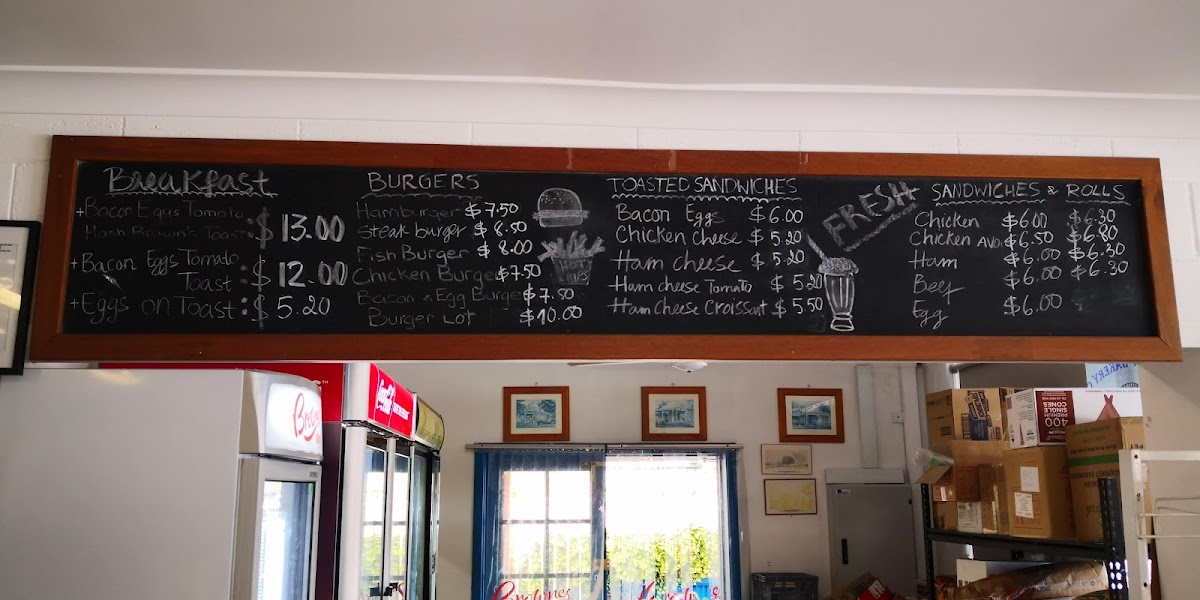 Breakfast
+Bacon Eggs Tomato
Hash Brown's Toast: $13.00
+Bacon Eggs Tomato
Toast: $12.00
+Eggs on Toast: $5.20
BURGERS
Hamburger $7.50
Steak burger $8.50
Fish Burger $8.00
Chicken Burger $7.50
Bacon & Egg Burger $7.50
Burger Lot $10.00
TOASTED SANDWICHES
Bacon Eggs $6.00
Chicken Cheese $5.20
Ham cheese $5.20
Ham cheese Tomato $5.20
Ham Cheese Croissant $5.50
FRESH
SANDWICHES & ROLLS
Chicken $6.00 $6.30
Chicken Avo $6.50 $6.80
Ham $6.00 $6.30
Beef $6.00 $6.30
Egg $6.00
Brownes
400
CONES
SINGLE
BAKERY